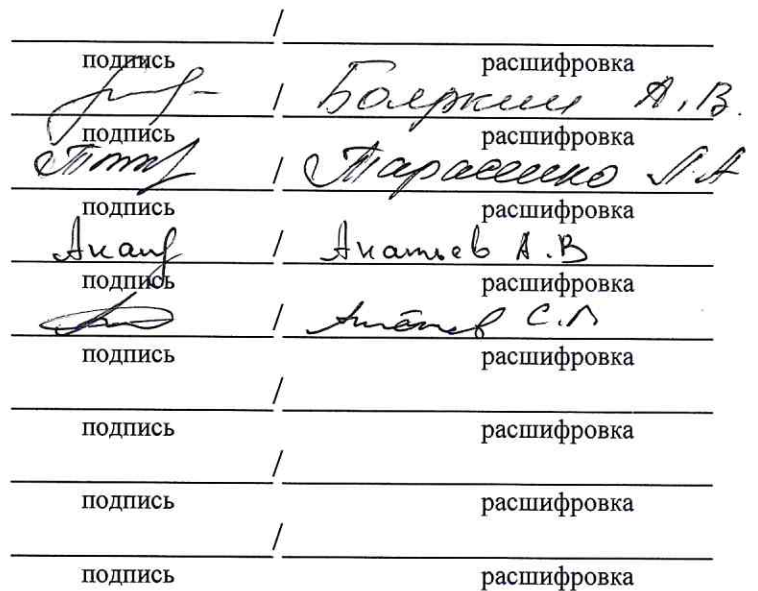 /
подпись расшифровка
/ Бояркин А.В.
подпись расшифровка
/ Тарасенко Л.А
подпись расшифровка
/ Анатьев А.В
подпись расшифровка
/ С.Л
подпись расшифровка
/
подпись расшифровка
/
подпись расшифровка
/
подпись расшифровка